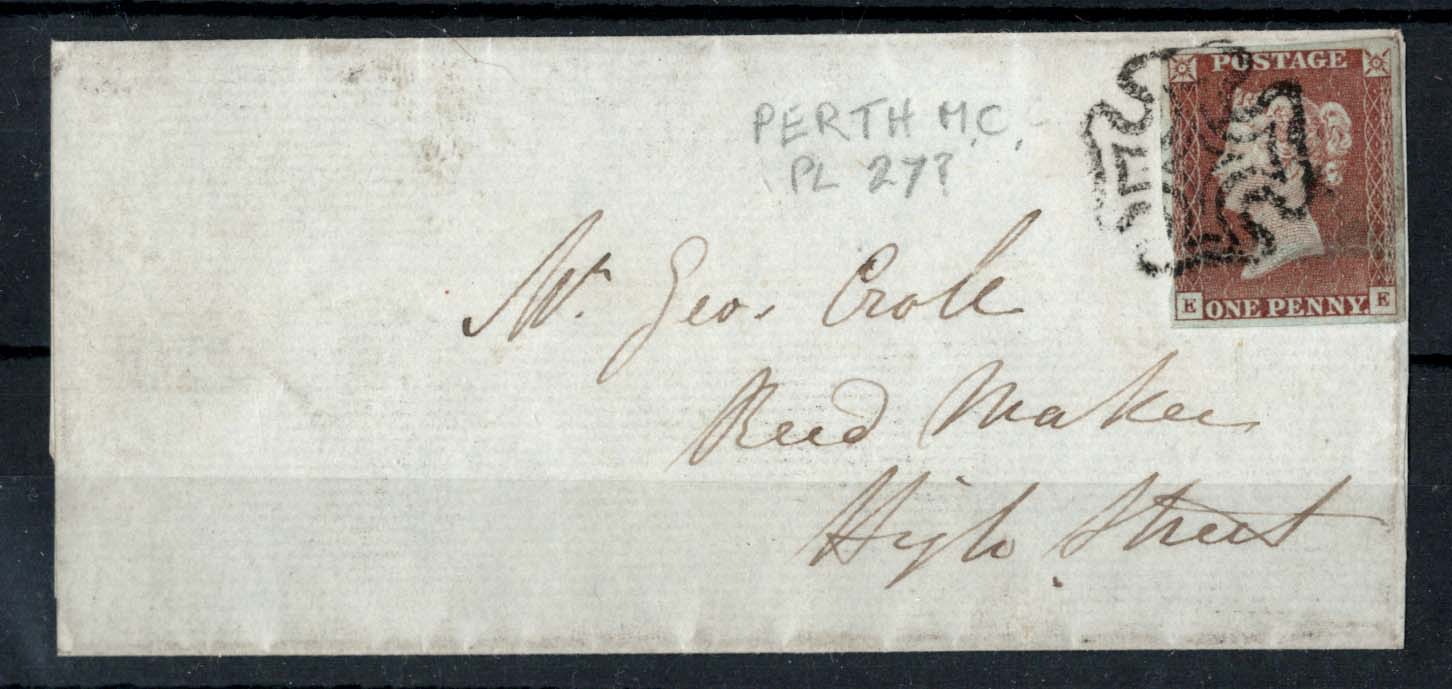 POSTAGE
PERTH M.C.
PL 27?
Mr. Geo. Croll
Reed Maker
High Street
E ONE PENNY. E